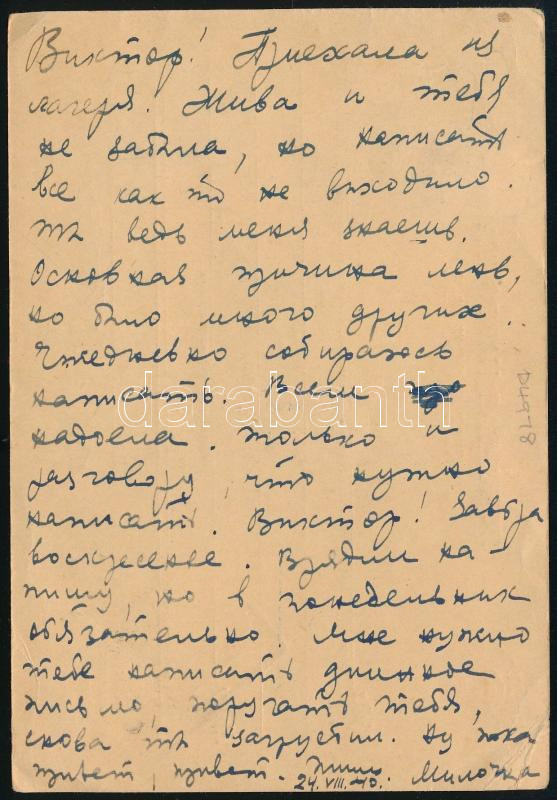 Виктор! Приехала из
лагеря. Жива и тебя
не забыла, но написать
все как то не выходило.
ты ведь меня знаешь.
Основная причина лень,
но было много других.
Ежедневно собираюсь
написать. Всем
надоела. только и
разговору, что нужно
написать. Виктор! Завтра
воскресенье. Врядли на-
пишу, но в понедельник
обязательно. Мне нужно
тебе написать длинное
письмо, поругать тебя,
снова ты загрустил. Ну пока
привет, привет. Пиши
24.VIII-40. Милочка
darabanth